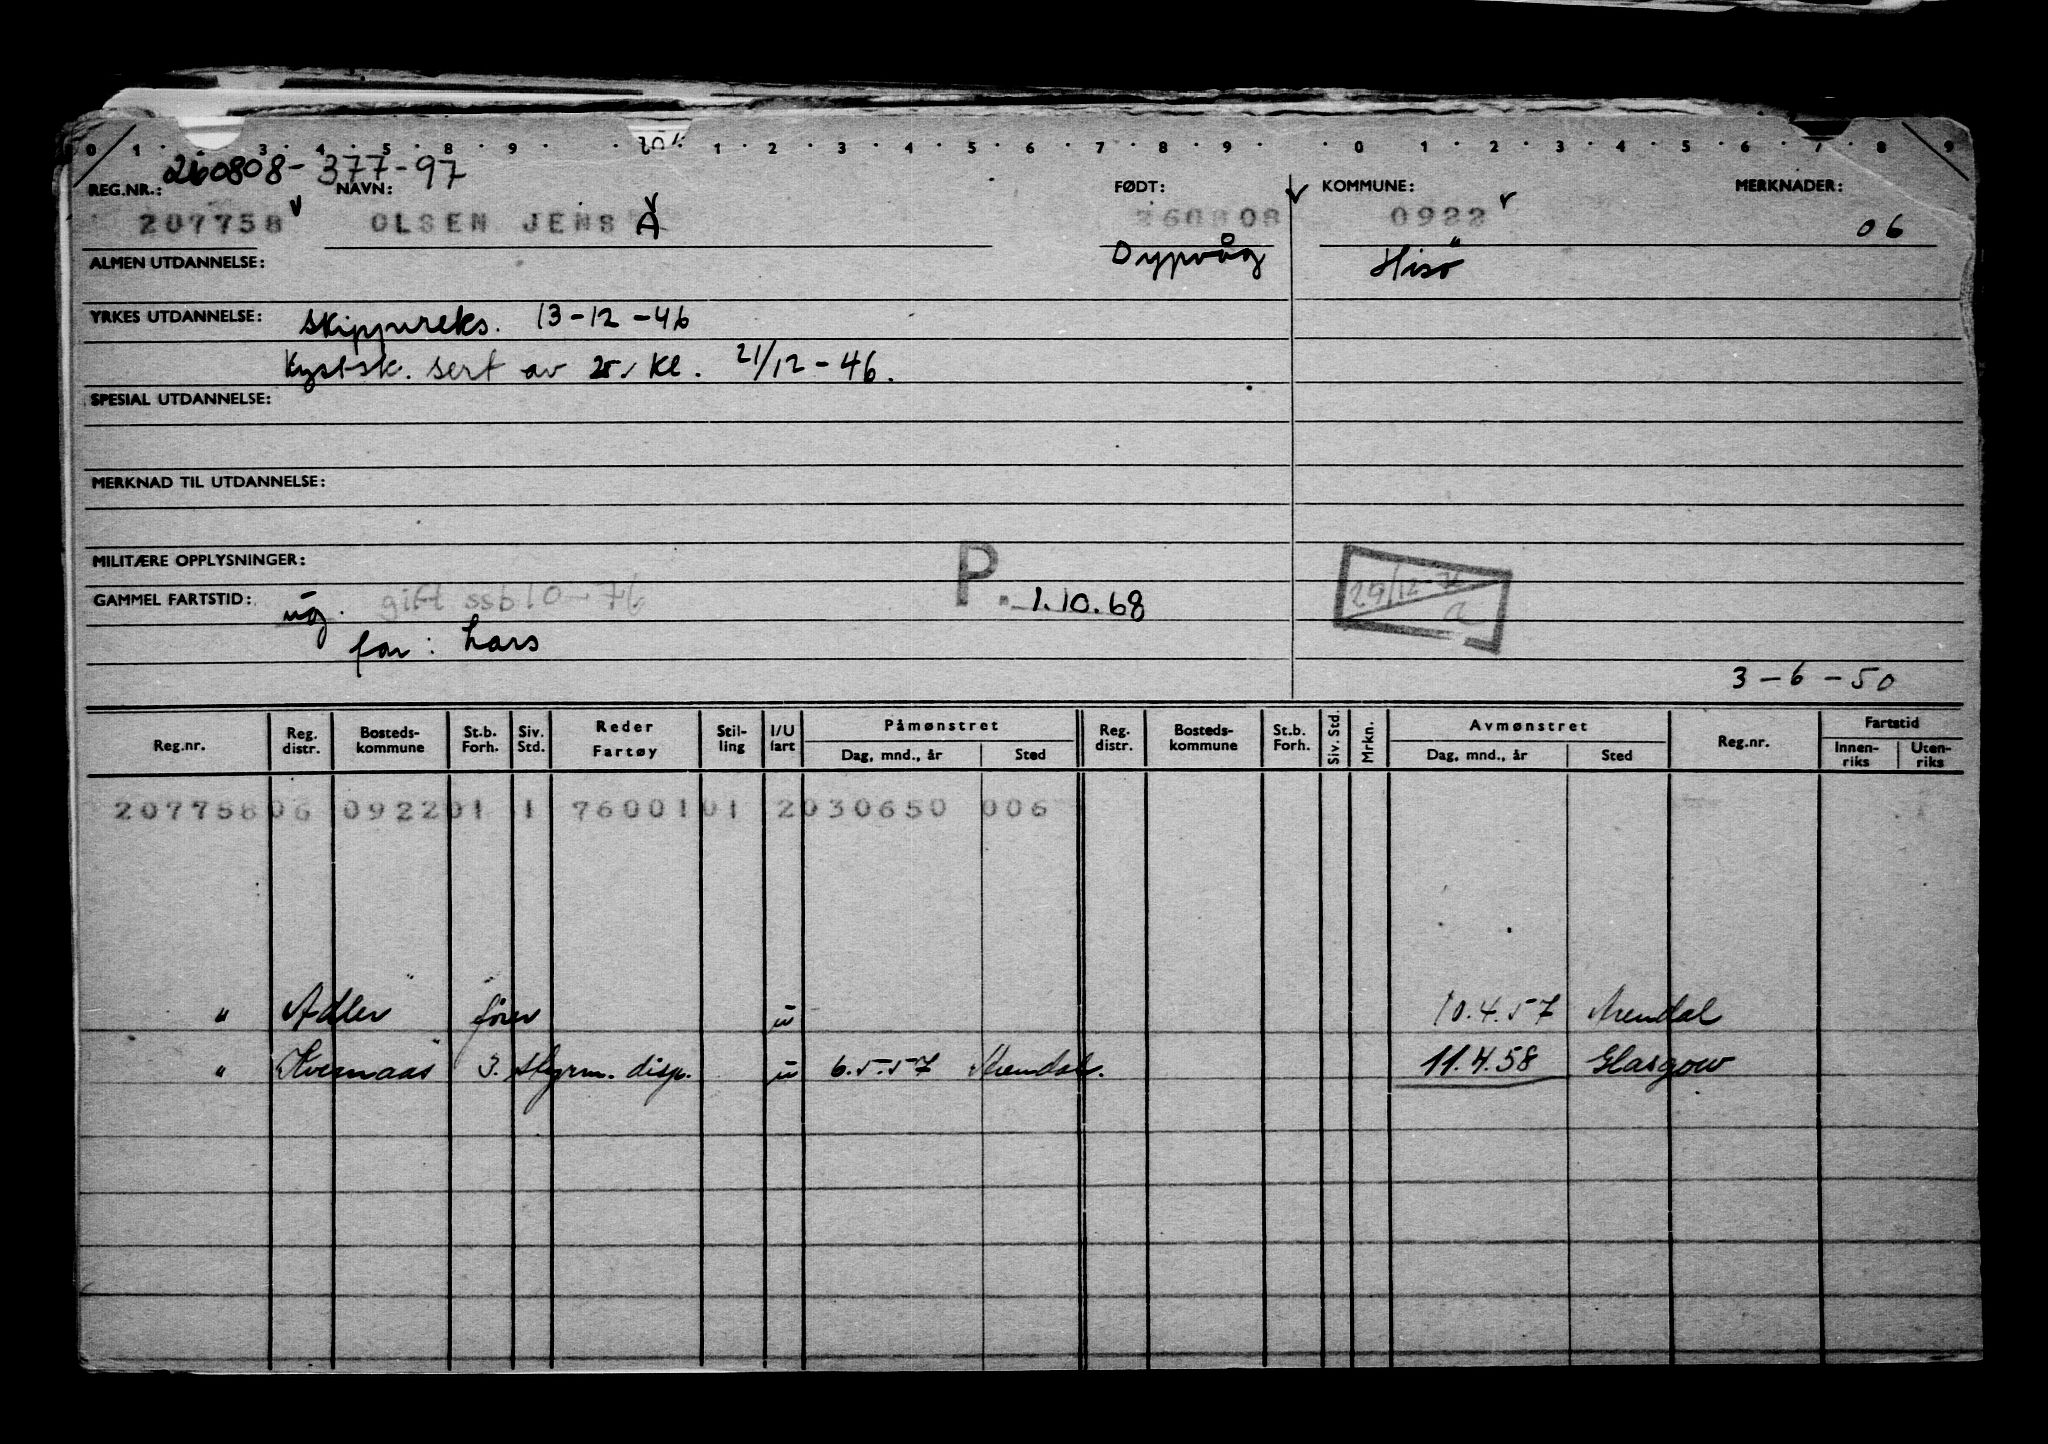 0 1 3 4 5 8 9 1 2 3 4 5 6 7 8 9 0 1 2 3 4 5 6 7 8 9
260808-377-97
REG.NR.: NAVN: FØDT: KOMMUNE: MERKNADER:
207758 OLSEN JENS A 260808 0922 06
ALMEN UTDANNELSE: Dypvåg Hisö
YRKES UTDANNELSE: Skippereks. 13-12-46
Kystsk. sert av 2. kl. 21/12-46.
SPESIAL UTDANNELSE:
MERKNAD TIL UTDANNELSE:
MILITÆRE OPPLYSNINGER:
GAMMEL FARTSTID: ug. gift ssb 10-76 P. 1.10.68 29/12-76 a
far: Lars
3-6-50
Reg.nr. Reg. distr. Bosteds- kommune St.b. Forh. Siv. Std. Reder Fartøy Stil- ling I/U fart Påmønstret Dag, mnd., år Sted Reg. distr. Bosteds- kommune St.b. Forh. Siv. Std. Mrkn. Avmønstret Dag, mnd., år Sted Reg.nr. Fartstid Innen- riks Uten- riks
207758 06 0922 01 1 76001 01 2 030650 006
" Adler" fører u 10.4.57 Arendal
" Kvernaas" 3. styrm. disp. u 6.5.57 Arendal. 11.4.58 Glasgow